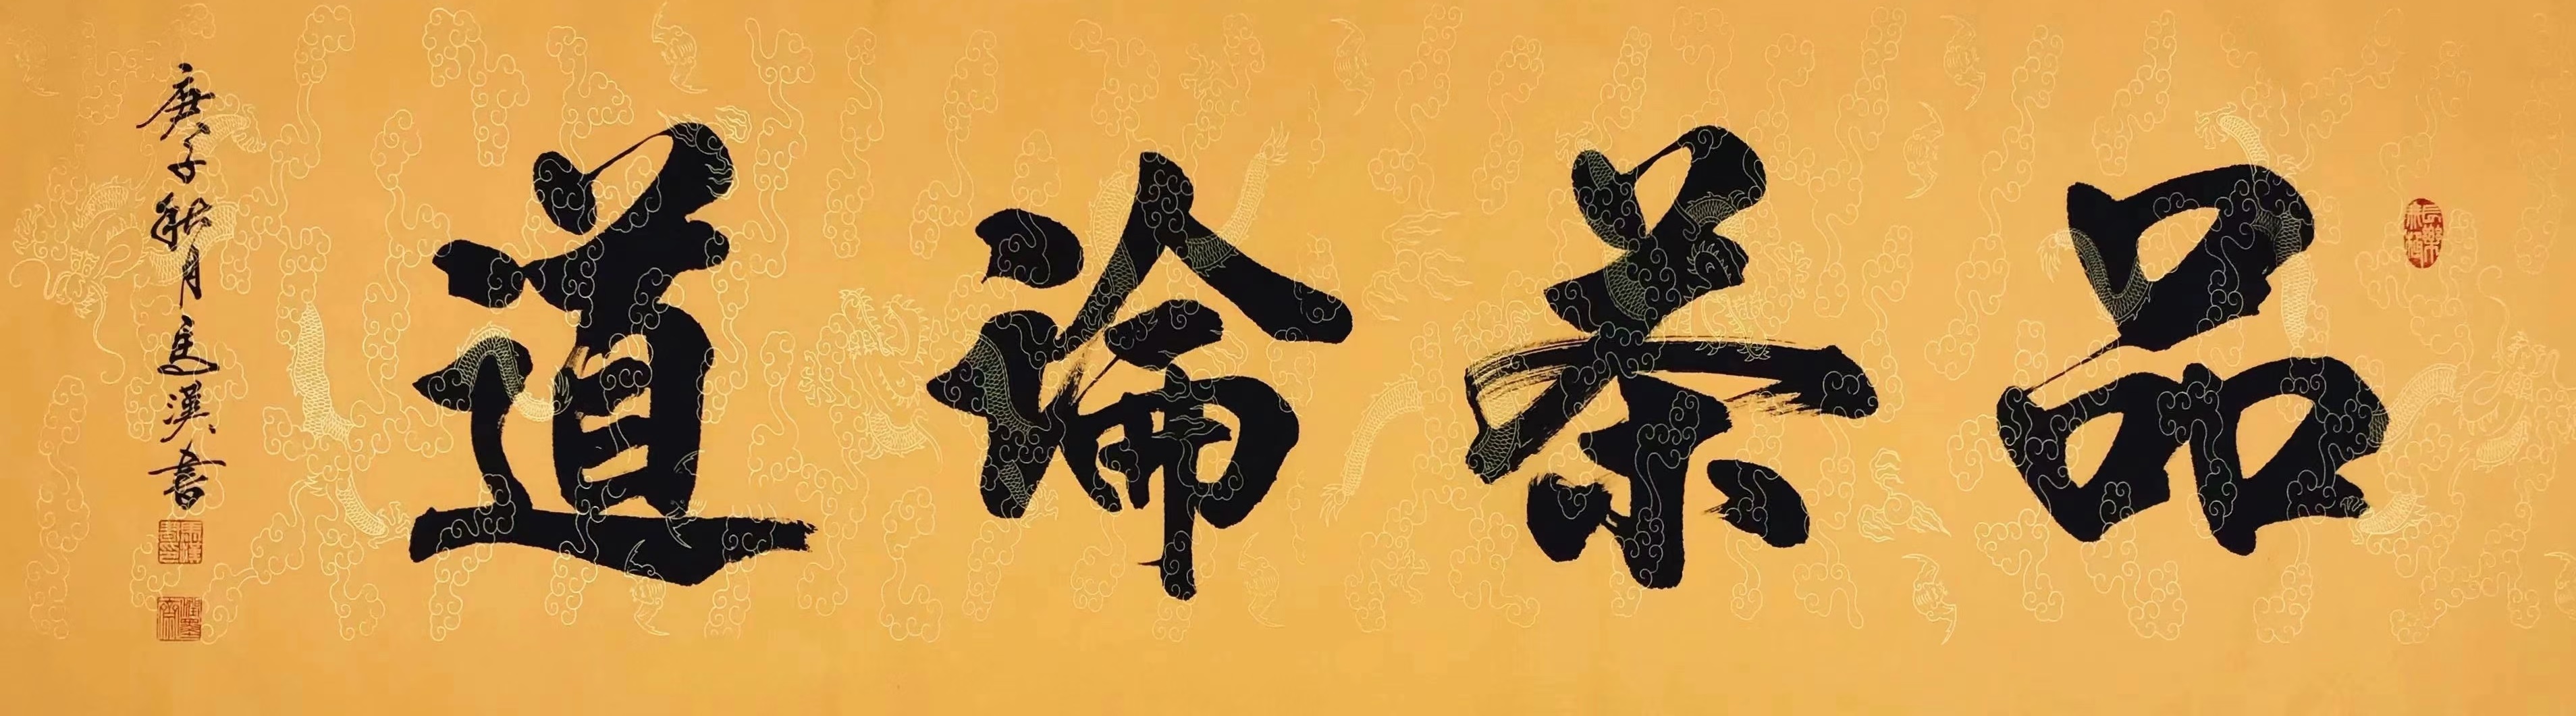 品茶論道
庚子秋月馬漢書